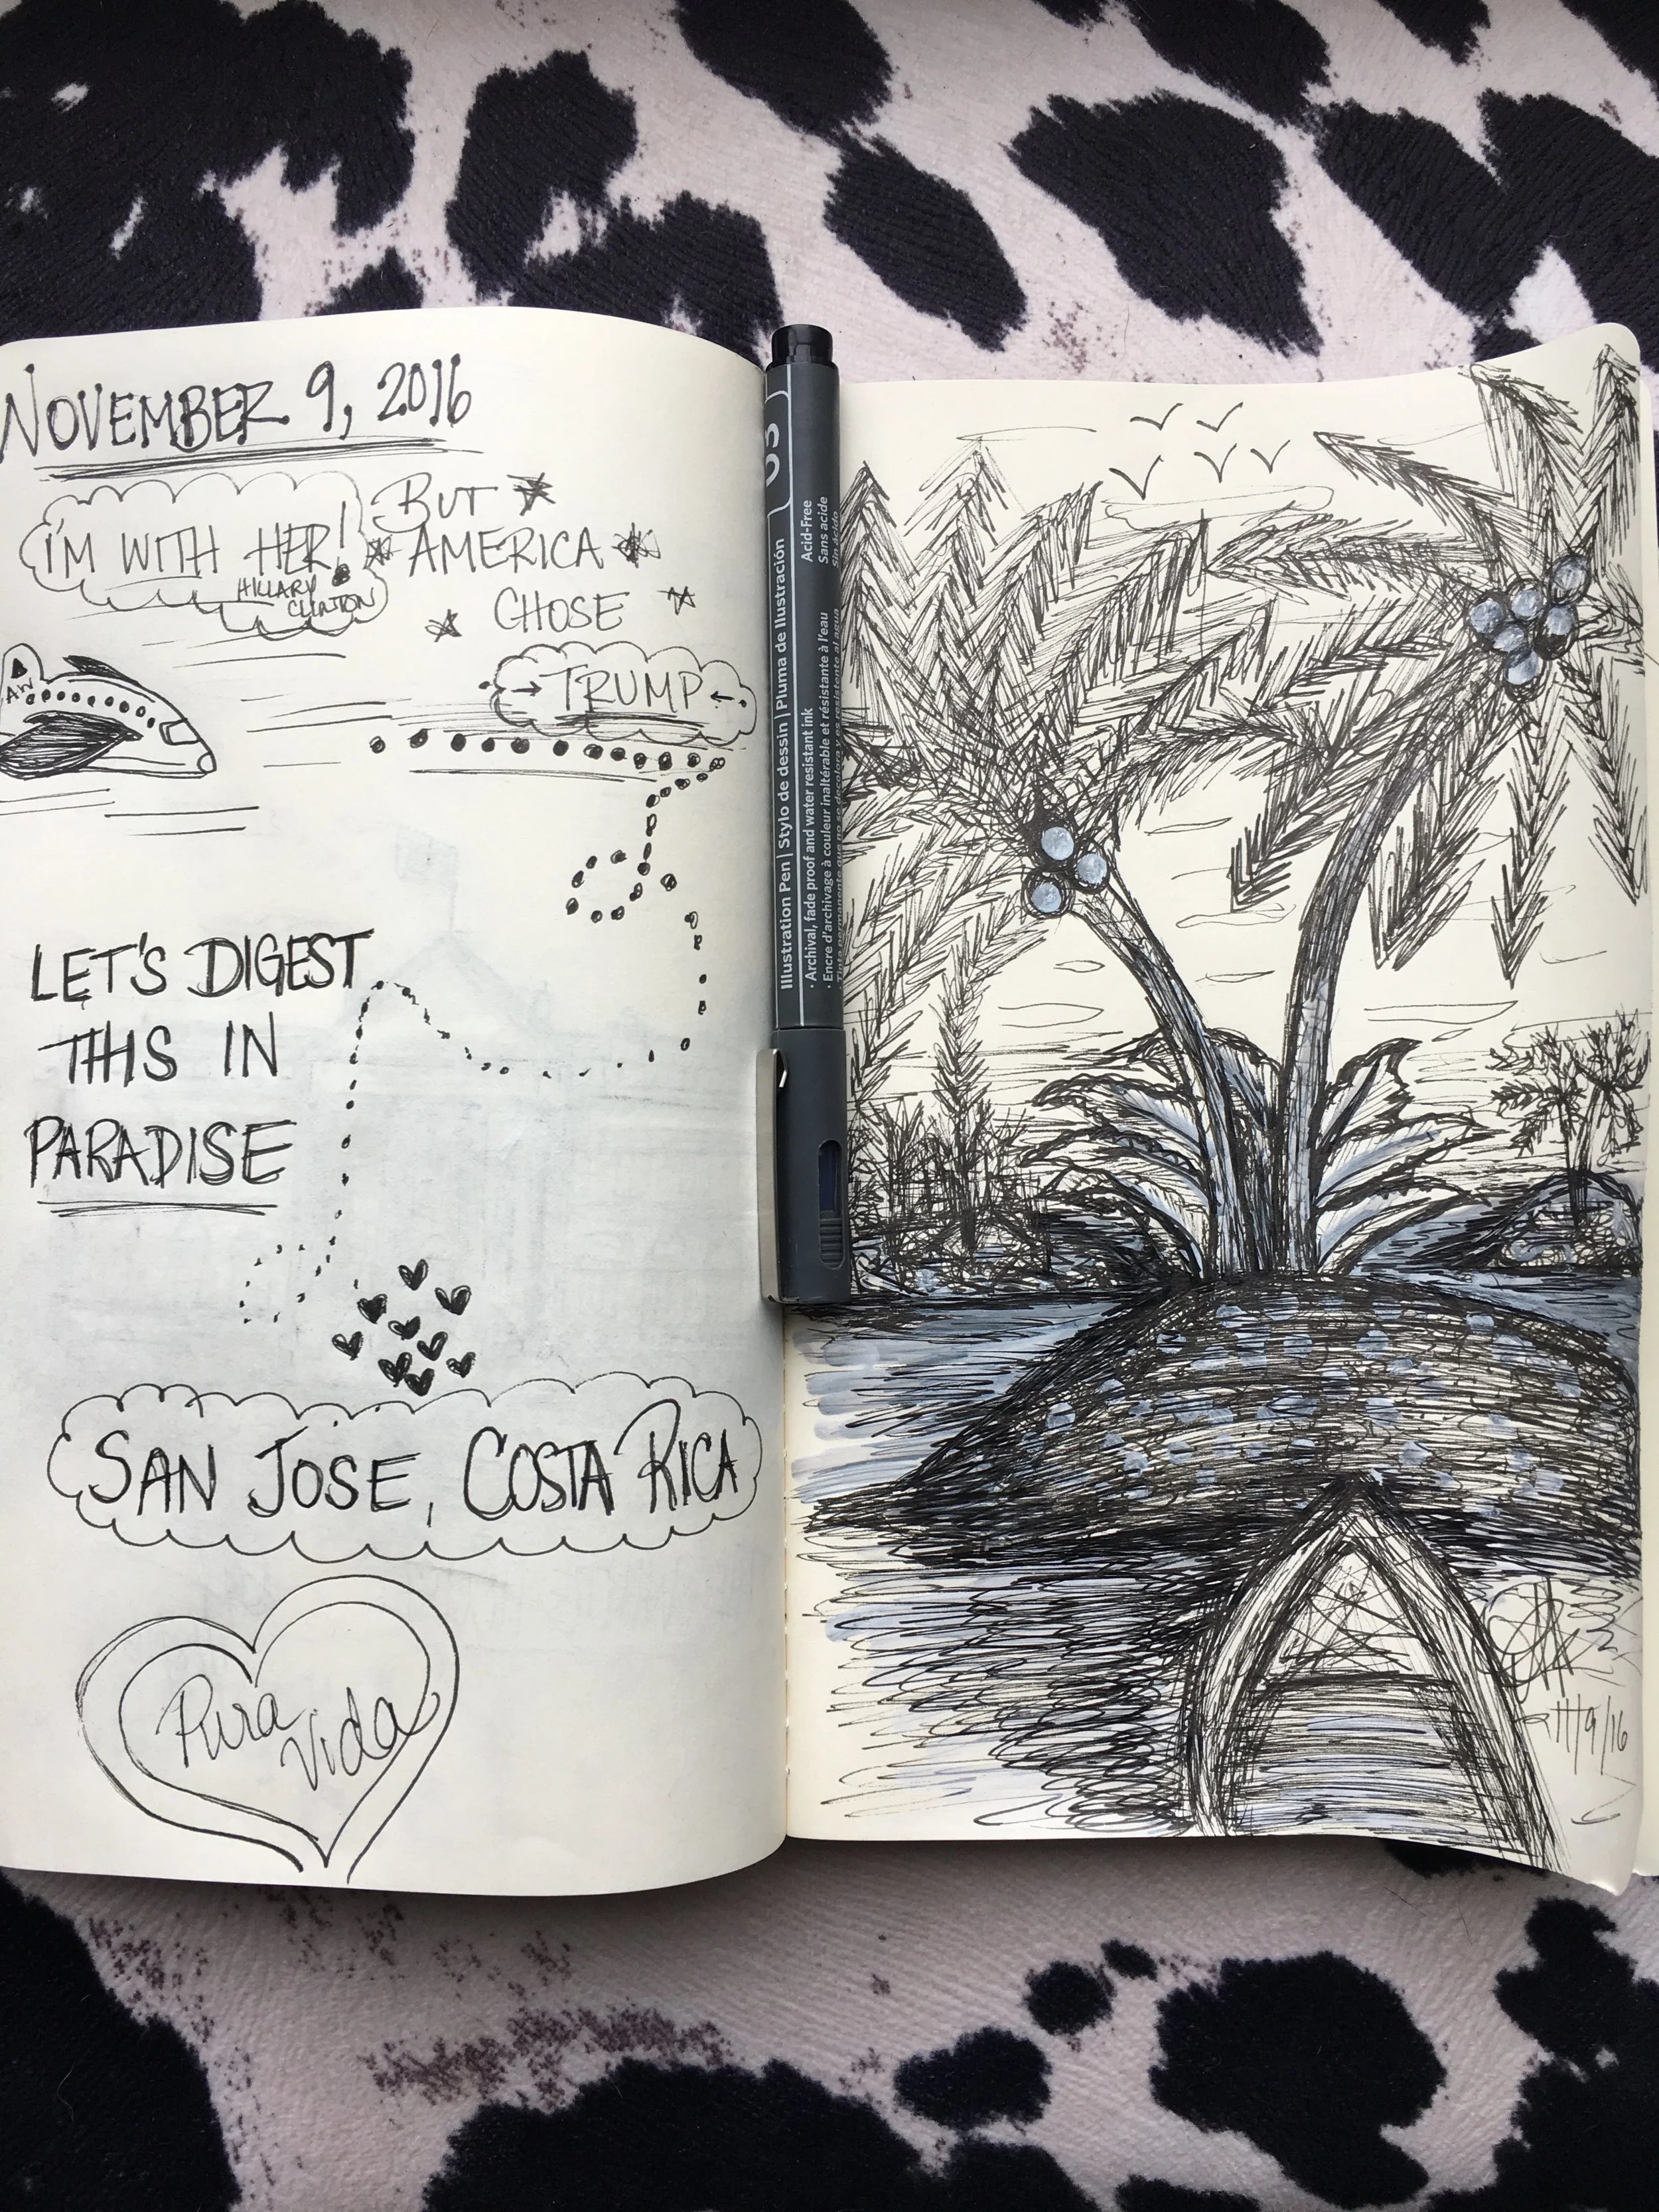 NOVEMBER 9, 2016
I'M WITH HER!
HILLARY
CLINTON
BUT
AMERICA
CHOSE
TRUMP
AW
LET'S DIGEST
THIS IN
PARADISE
SAN JOSE, COSTA RICA
Pura
Vida
03
Illustration Pen | Stylo de dessin | Pluma de Ilustración
Acid-Free
Sans acide
Sin ácido
· Archival, fade proof and water resistant ink
· Encre d'archivage à couleur inaltérable et résistante à l'eau
Tinta permanente que no se decolora y es resistente al agua
11/9/16